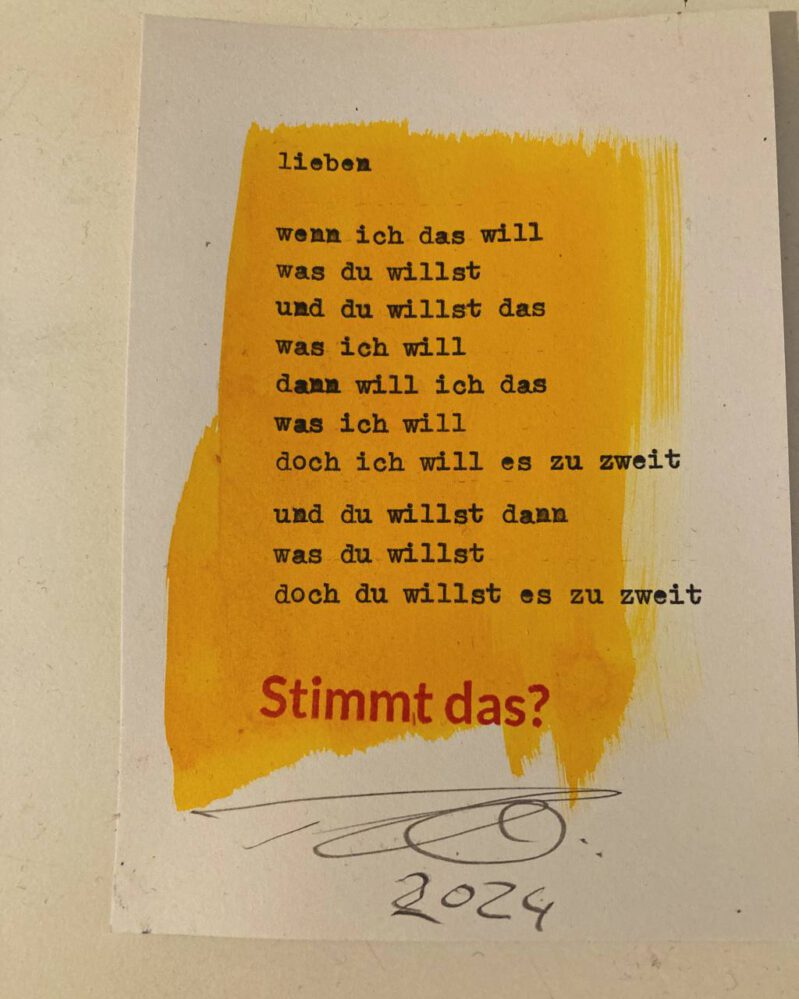 lieben
wenn ich das will
was du willst
und du willst das
was ich will
dann will ich das
was ich will
doch ich will es zu zweit
und du willst dann
was du willst
doch du willst es zu zweit
Stimmt das?
2024